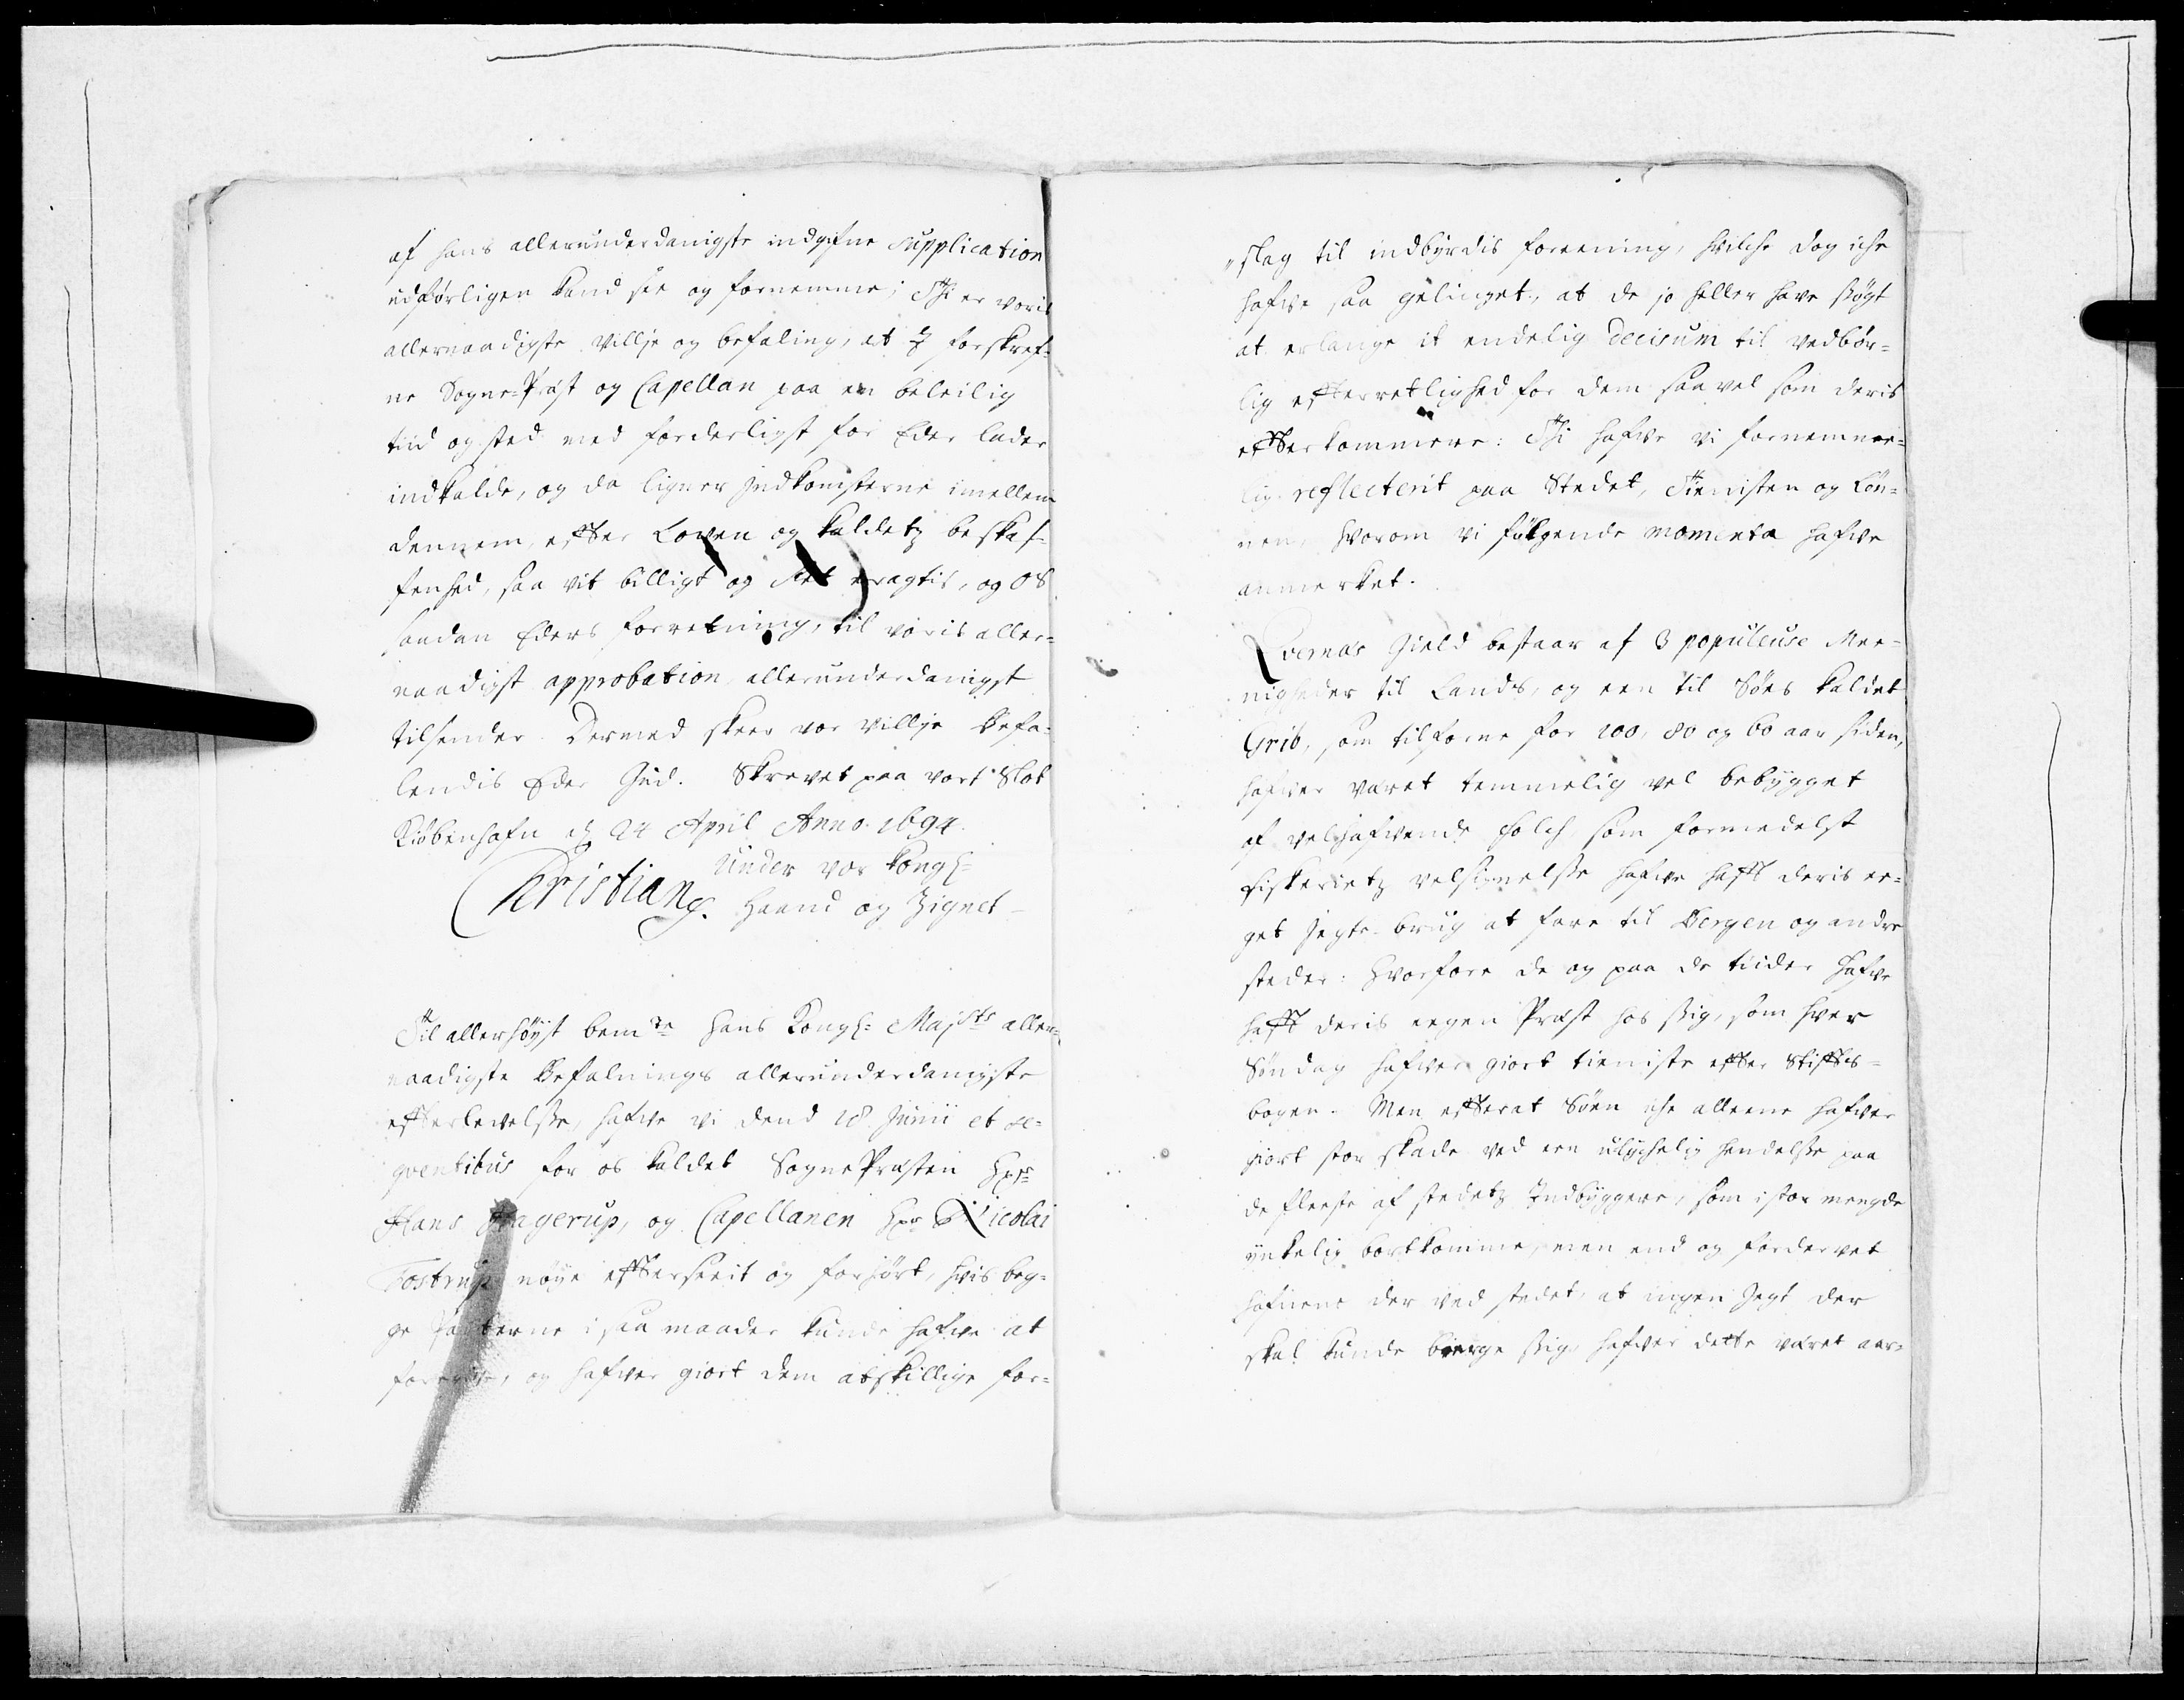 af hans allerunderdanigste indgifne Supplication
udførligen kand see og fornemme; Thi er voris
allernaadigste villje og befaling, at I forskref¬
ne Sogne-Præst og Capellan paa en beleilig
tiid og sted med forderligst for Eder lader
indkalde, og da ligner Indkomsterne imellem
dennem, efter Loven og kaldetz beskaf¬
fenhed, saa vit billigt og Ret eragtis, og OS
saadan Eders forretning, til voris aller¬
naadigst approbation allerunderdanigst
tilsender. Dermed skeer vor villje Befa¬
lendis Eder Gud. Skrevet paa vort Slot
Kiøbenhafn d 24 April Anno. 1694.
Under vor Kongl:
Christian. Haand og Zignet
Til allerhøyst bemte Hans Kongl: Majsts aller¬
naadigste Befalnings allerunderdanigste
efterlevelsse, hafve vi dend 18 Junii et se¬
qventibus for os kaldet Sogne Præsten Hr:
Hans Hagerup, og Capellanen Hr: Nicolai
Tostrup nøye efterseeit og forhørt, hvis beg¬
ge Parterne i saa maader kunde hafve at
foregive, og hafver giort dem atskillige for¬
slag til indbyrdis foreening, hvilche dog iche
hafve saa gelinget, at de jo heller have søgt
at erlange it endelig decisum til vedbør¬
lig efterretlighed for dem saavel som deris
efterkommere: Thi hafve vi fornemme¬
lig reflecterit paa Stedet, Tienisten og Løn¬
nen, hvorom vi følgende momenta hafve
anmerket.
Qvernæs Gield bestaar af 3 populeuse Mee¬
nigheder til Lands, og een til Søes kaldet
Grib, som tilforne for 100, 80 og 60 aar siden,
hafver været temmelig vel bebygget
af velhafvende folch som formedelst
fiskerietz velsignelsse hafve haft deris ee¬
get Jegte-brug at fare til Bergen og andre
steder: Hvorfore de og paa de tiider hafve
haft deris eegen Præst hos sig, som hver
Søndag hafver giort tieniste efter Skiftes¬
bogen. Men efterat Søen iche alleene hafver
giort stor skade ved een ulychelig hendelsse paa
de fleeste af stedetz Indbyggere, som i stor mengde
ynkelig bortkomme, men end og fordervet
hafnene der ved stedet, at ingen Jegt der
skal kunde bierge sig, hafver dette været aar¬